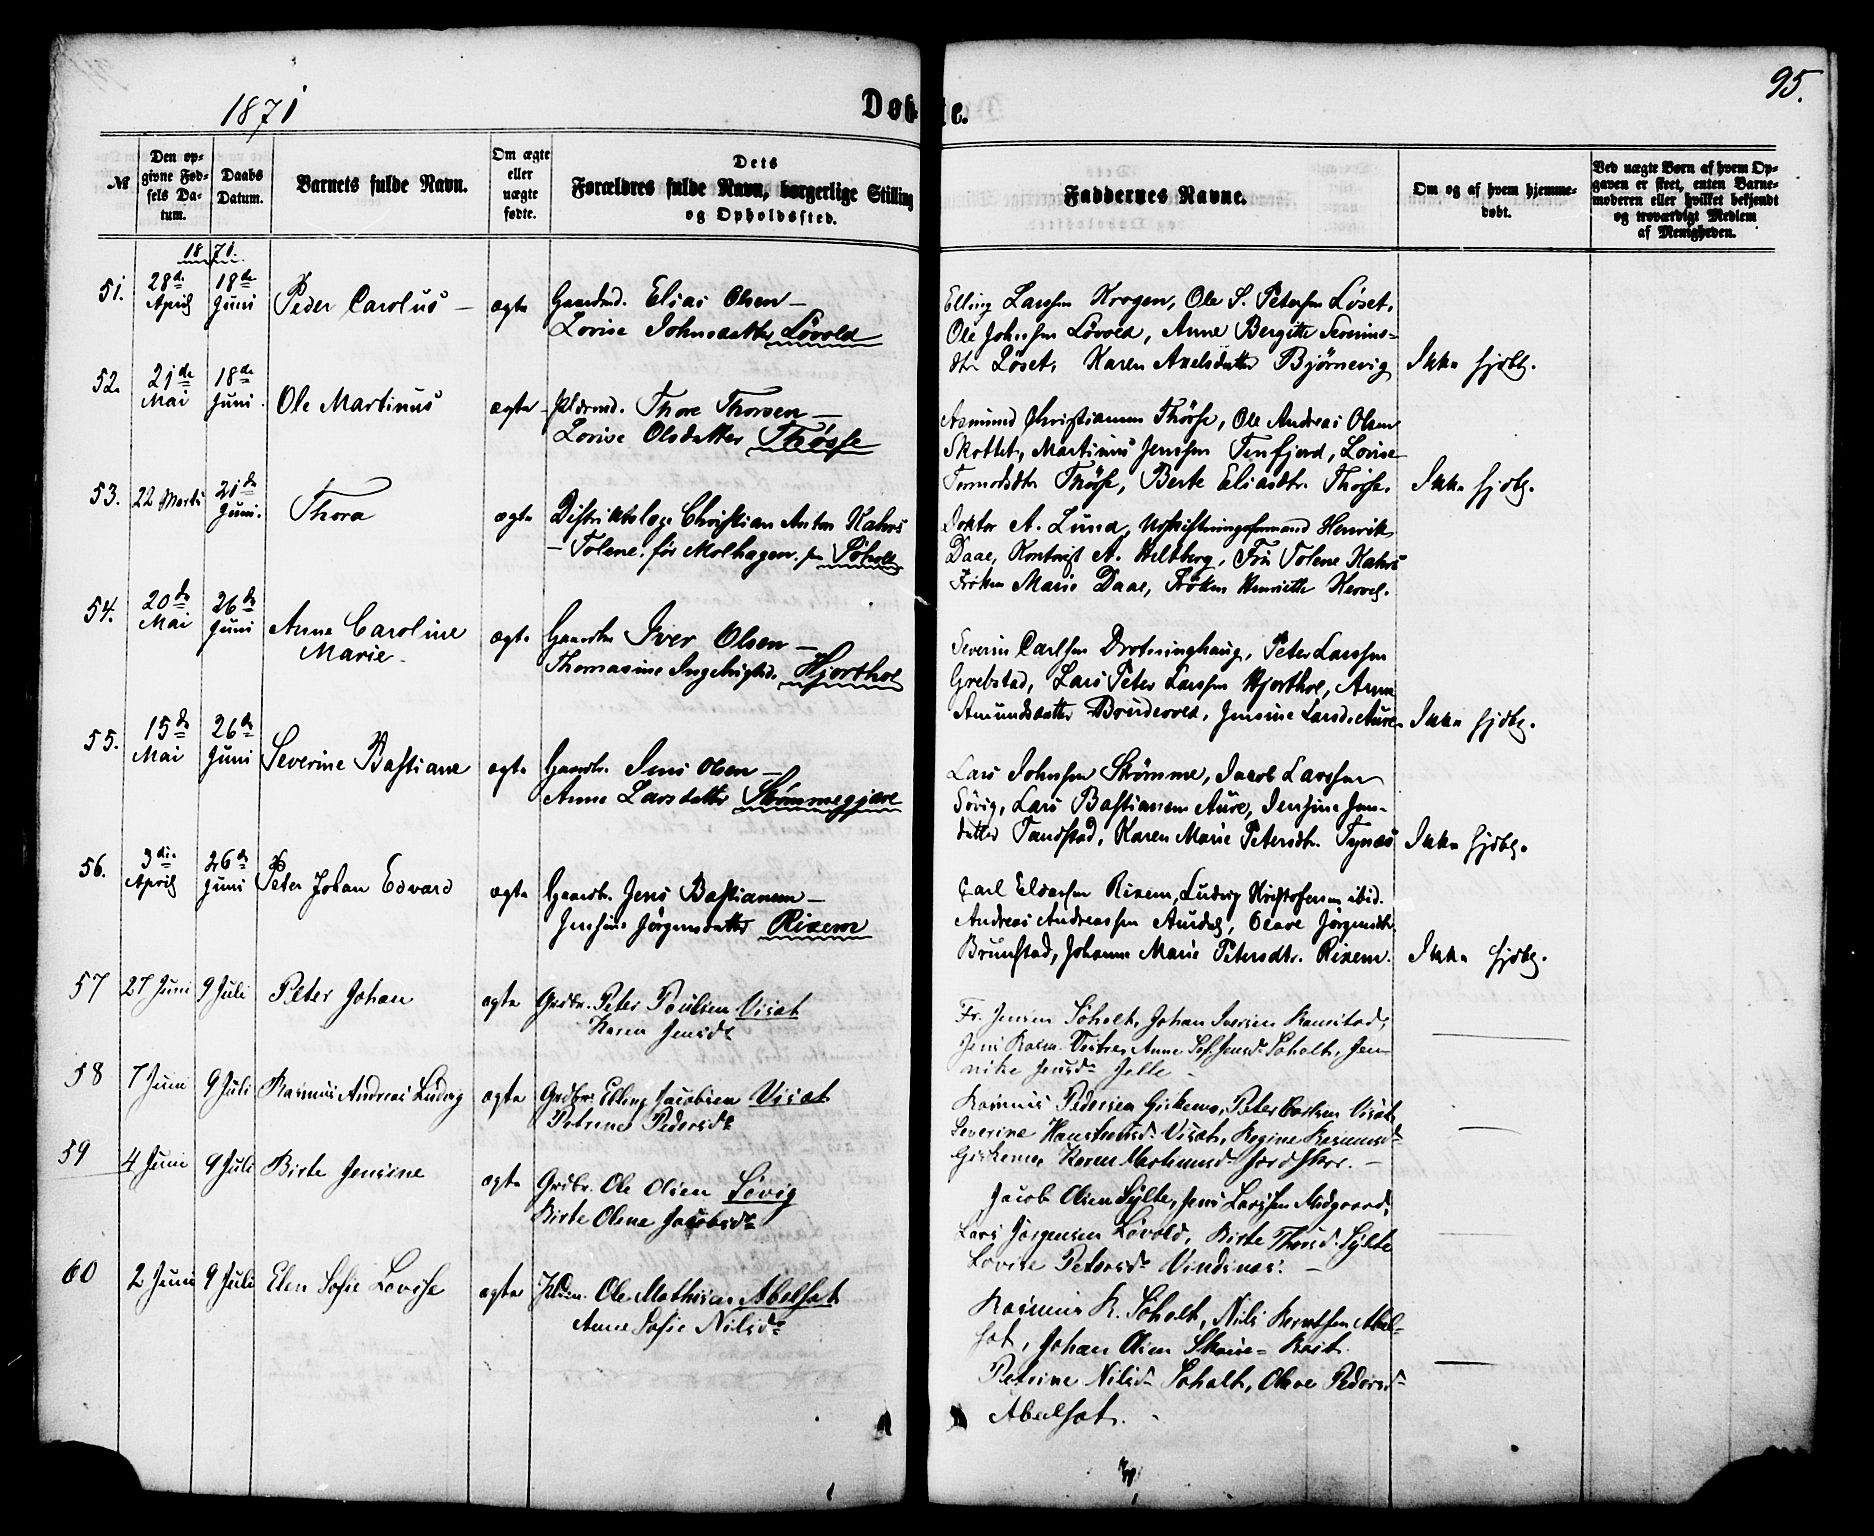 95.
1871
Døbte.
№
Den opgivne Fødsels Datum.
Daabs Datum.
Barnets fulde Navn.
Om ægte eller uægte fødte.
Dets Forældres fulde Navn, borgerlige Stilling og Opholdssted.
Faddernes Navne.
Om og af hvem hjemmedøbt.
Ved uægte Børn af hvem Opgaven er skeet, enten Barnemoderen eller hvilket bekjendt og troværdigt Medlem af Menigheden.
1871.
51. 28de April 18de Juni Peder Carolus – ægte Gaardmd. Elias Olsen –
Lovise Johnsdatter Løvold
Elling Larssen Krogen, Ole S. Petersen Løset,
Ole Johnsen Løvold, Anne Bergitte
dtr Løset, Karen Axelsdatter Bjørnevig Ikke hjdbt.
52. 21de Mai 18de Juni. Ole Martinus ægte Thore Thorsen –
Lovise Olsdatter Thøsse
Asmund Christiansen Thørse, Ole Andreas Olsen
Skottet, Martinus Jenssen Tenfjord, Lovise
Tormodsdtr Thørse, Berte Eliasdtr. Thørse. Ikke hjdbt.
53. 22 Marts 21de Juni. Thora ægte Distriktslæge Christian Anton Kahrs
– Tolene, før Molhagen. Søholt
Doktor A. Lund, Udskiftningsformand Henrik
Daae, A. Heltberg, Fru Tolene Kahrs
Frøken Marie Daae, Frøken Henriette
54. 20de Mai 26de Juni Anne Caroline
Marie – ægte Gaardbr Iver Olsen –
Thomasine Ingebrigtsd. Hjorthol
Severin Carlsen Drotninghaug, Peter Larssen
Grebstad, Lars Peter Larssen Hjorthol, Anne
Amundsdatter Brudevold, Jensine Larsd. Aure. Ikke hjdbt.
55. 15de Mai 26de Juni Severine Bastiane ægte Gaardbr. Jens Olsen –
Anne Larsdatter Strømmegjære
Lars Johnsen Strømme, Jacob Larssen
Søvig, Lars Bastiansen Aure, Jensine Jens-
datter Tandstad, Karen Marie Petersdtr. Tynæs Ikke hjdbt.
56. 3die April 26de Juni Peter Johan Edvard ægte Gaardbr. Jens Bastiansen –
Jensine Jørgensdatter Rixem
Carl Eldassen Rixem, Ludvig Kristofersen ibid.
Andreas Andreassen Aurdal, Olave Jørgensdtr.
Brunstad, Johanne Marie Petersdtr. Rixem. Ikke hjdbt.
57 27 Juni 9 Juli Peter Johan ægte Grdbr. Peter Poulsen Viset
Karen Jensdr
Fr. Jensen Søholt, Johan Iversen Ramstad,
Jens Rasm. Vestre, Anne Sof. Jensdr Søholt, Jen-
nike Jensdr Jelle –
58 7 Juni 9 Juli Rasmus Andreas Ludvig ægte Grdbr. Elling Jacobsen Viset
Petrine Pedersdr
Rasmus Pedersen Giskemo, Peter Carlsen Viset,
Severine Viset, Regine Rasmusdr
Giskemo, Karen Martinusdr –
59 4 Juni 9 Juli Birte Jensine ægte Grdbr. Ole Olsen Søvig
Birte Oline Jacobsdr
Jacob Olsen Sylte, Jens Larssen Midgaard,
Lars Jørgensen Løvold, Birte Thorsd. Sylte
Lovise Petersdr Vindsnes. –
60 2 Juni 9 Juli Elen Sofie Lovise ægte Ole Mathisen Abelset
Anne Sofie Nilsdr
Rasmus R. Søholt, Nils Berntsen Abel-
set, Johan Olsen
Petrine Nilsdr Søholt, Olave Pedersdr
Abelset.